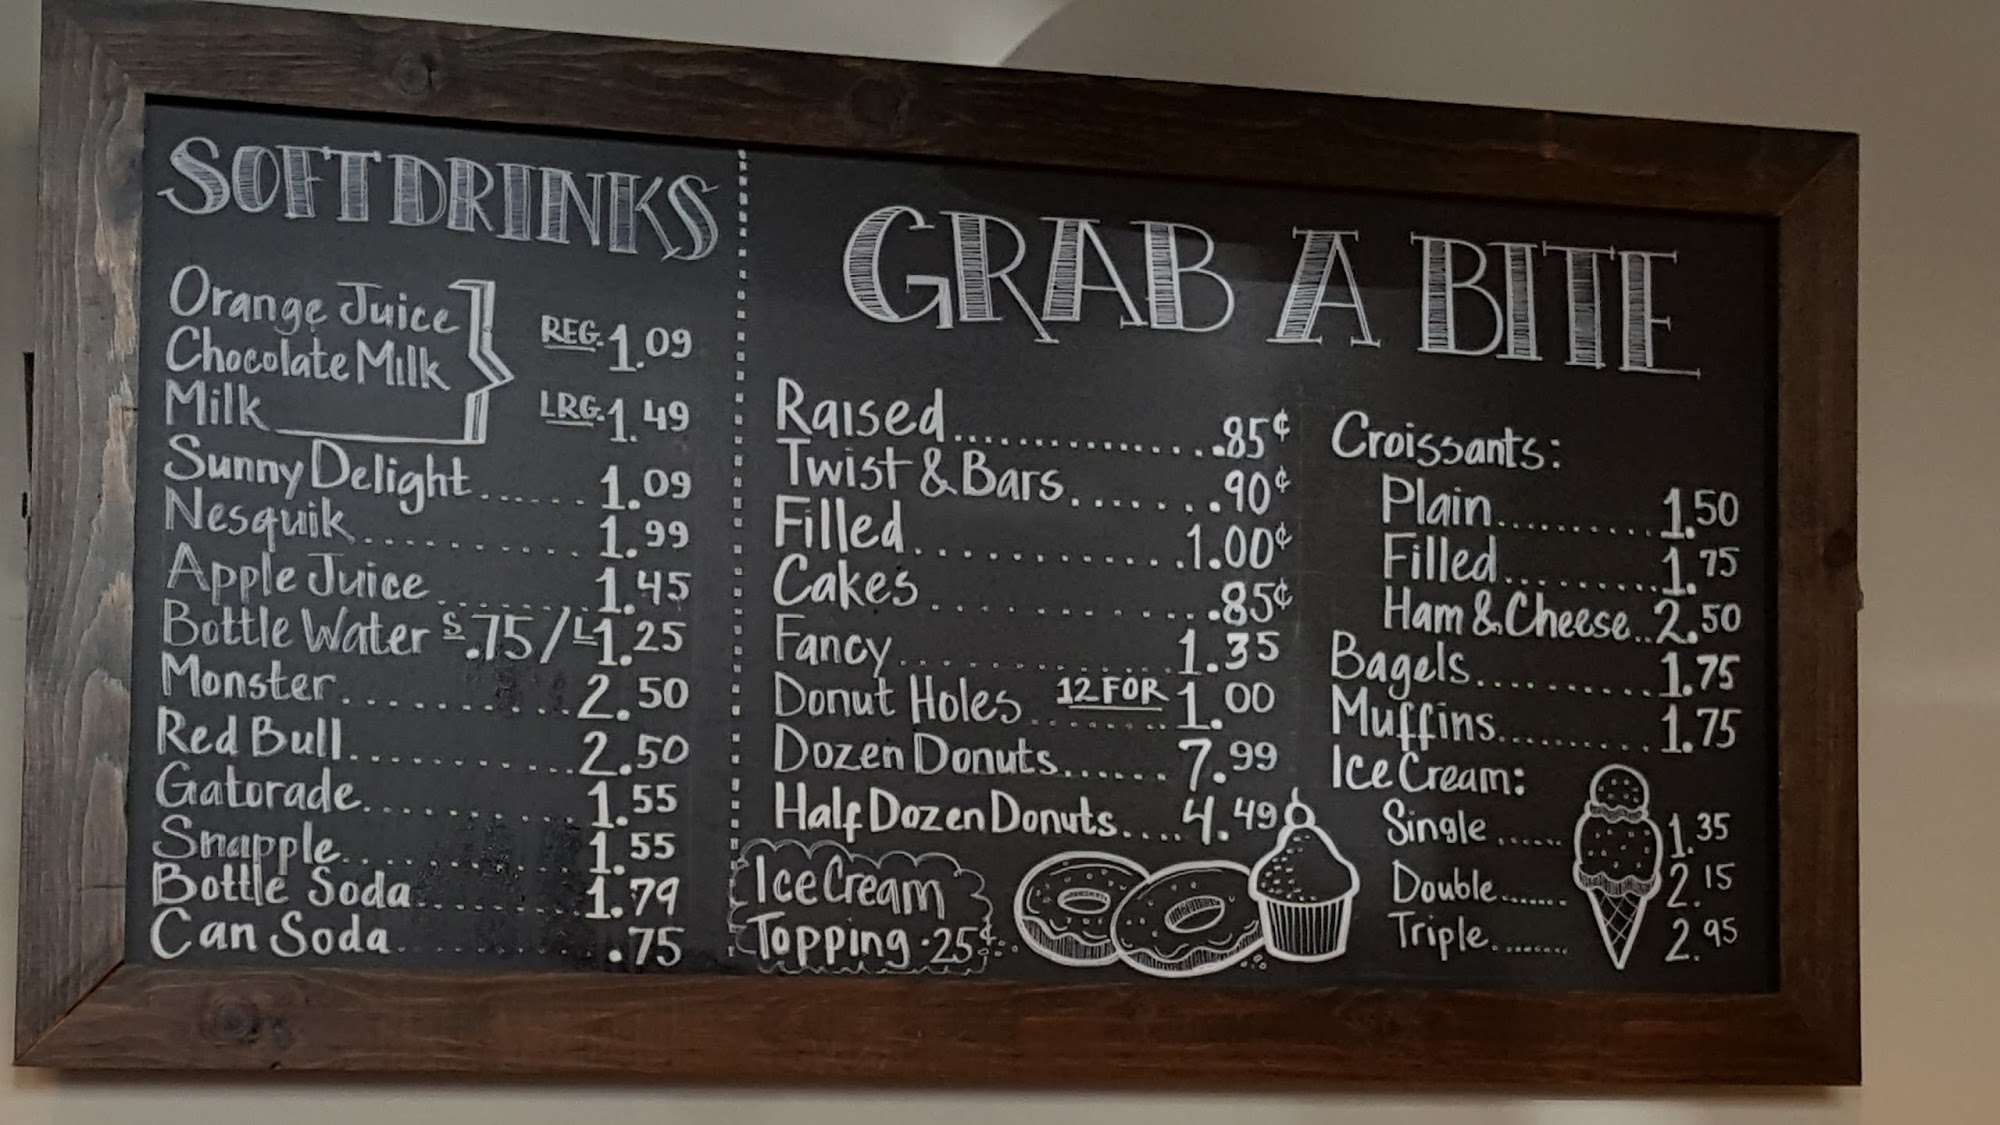 SOFT DRINKS
Orange Juice
Chocolate Milk
Milk
REG. 1.09
LRG. 1.49
Sunny Delight...... 1.09
Nesquik.......... 1.99
Apple Juice........ 1.45
Bottle Water S .75/L 1.25
Monster.......... 2.50
Red Bull.......... 2.50
Gatorade.......... 1.55
Snapple.......... 1.55
Bottle Soda........ 1.79
Can Soda........ .75
GRAB A BITE
Raised............... .85¢
Twist & Bars........ .90¢
Filled............ 1.00¢
Cakes............ .85¢
Fancy............ 1.35
Donut Holes 12 FOR 1.00
Dozen Donuts...... 7.99
Half Dozen Donuts.... 4.49
Ice Cream
Topping .25¢
Croissants:
Plain......... 1.50
Filled......... 1.75
Ham & Cheese.. 2.50
Bagels.......... 1.75
Muffins.......... 1.75
Ice Cream:
Single...... 1.35
Double....... 2.15
Triple........ 2.95